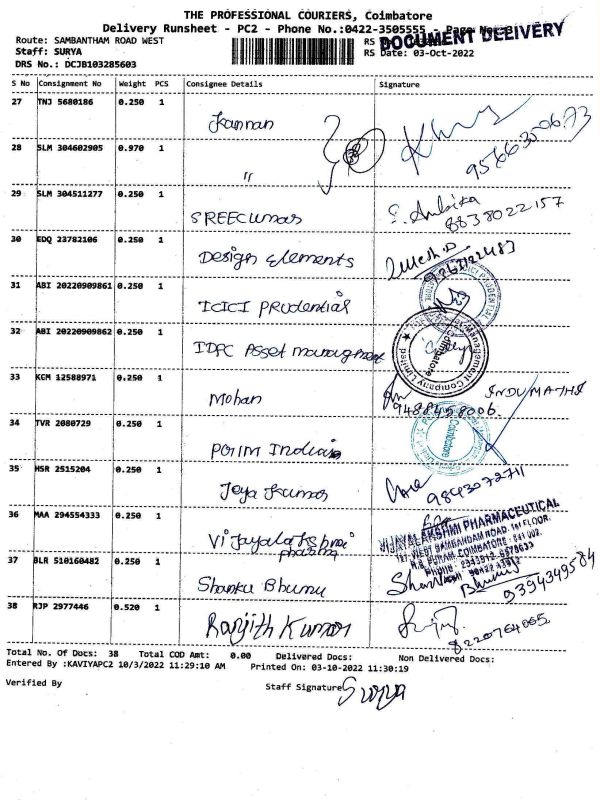 THE PROFESSIONAL COURIERS, Coimbatore
Delivery Runsheet - PC2 - Phone No.:0422-3505555
DOCUMENT DELIVERY
Route: SAMBANTHAM ROAD WEST
Staff: SURYA RS Date: 03-Oct-2022
DRS No.: DCJB103285603
S No Consignment No Weight PCS Consignee Details Signature
27 TNJ 5680186 0.250 1 Kannan
28 SLM 304602905 0.970 1 "
29 SLM 304511277 0.250 1 SREECUMAR 8838022157
30 EDQ 23782106 0.250 1 Design Elements
31 ABI 20220909861 0.250 1 ICICI Prudential
32 ABI 20220909862 0.250 1 IDFC Asset managment
33 KCM 12588971 0.250 1 Mohan INDUMATHI
9488458006
34 TVR 2080729 0.250 1 PGIM India
Coimbatore
35 HSR 2515204 0.250 1 Jeya Kumar 9843072711
36 MAA 294554333 0.250 1 Vijayalakshmi pharma
VIJAYALAKSHMI PHARMACEUTICAL
37 BLR 510160482 0.250 1 Shanku Bhumu 9394349584
38 RJP 2977446 0.520 1 Ranjith Kumar
Total No. Of Docs: 38 Total COD Amt: 0.00 Delivered Docs: Non Delivered Docs:
Entered By :KAVIYAPC2 10/3/2022 11:29:10 AM Printed On: 03-10-2022 11:30:19
Verified By Staff Signature Surya